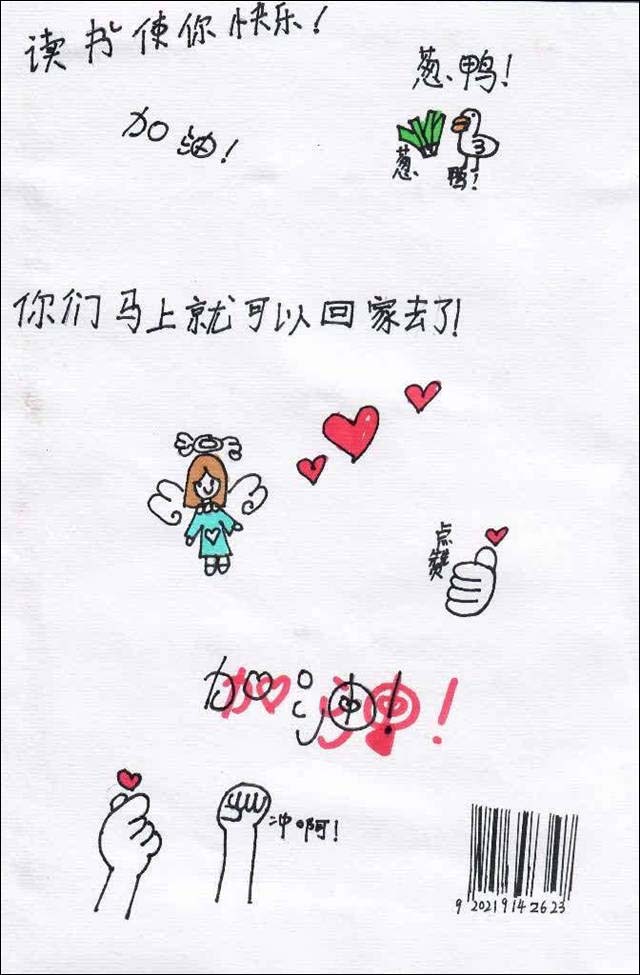 读书使你快乐!
葱鸭!
加油!
葱鸭!
你们马上就可以回家去了!
点赞
加油!
加油!
冲啊!
9 2021914 2623